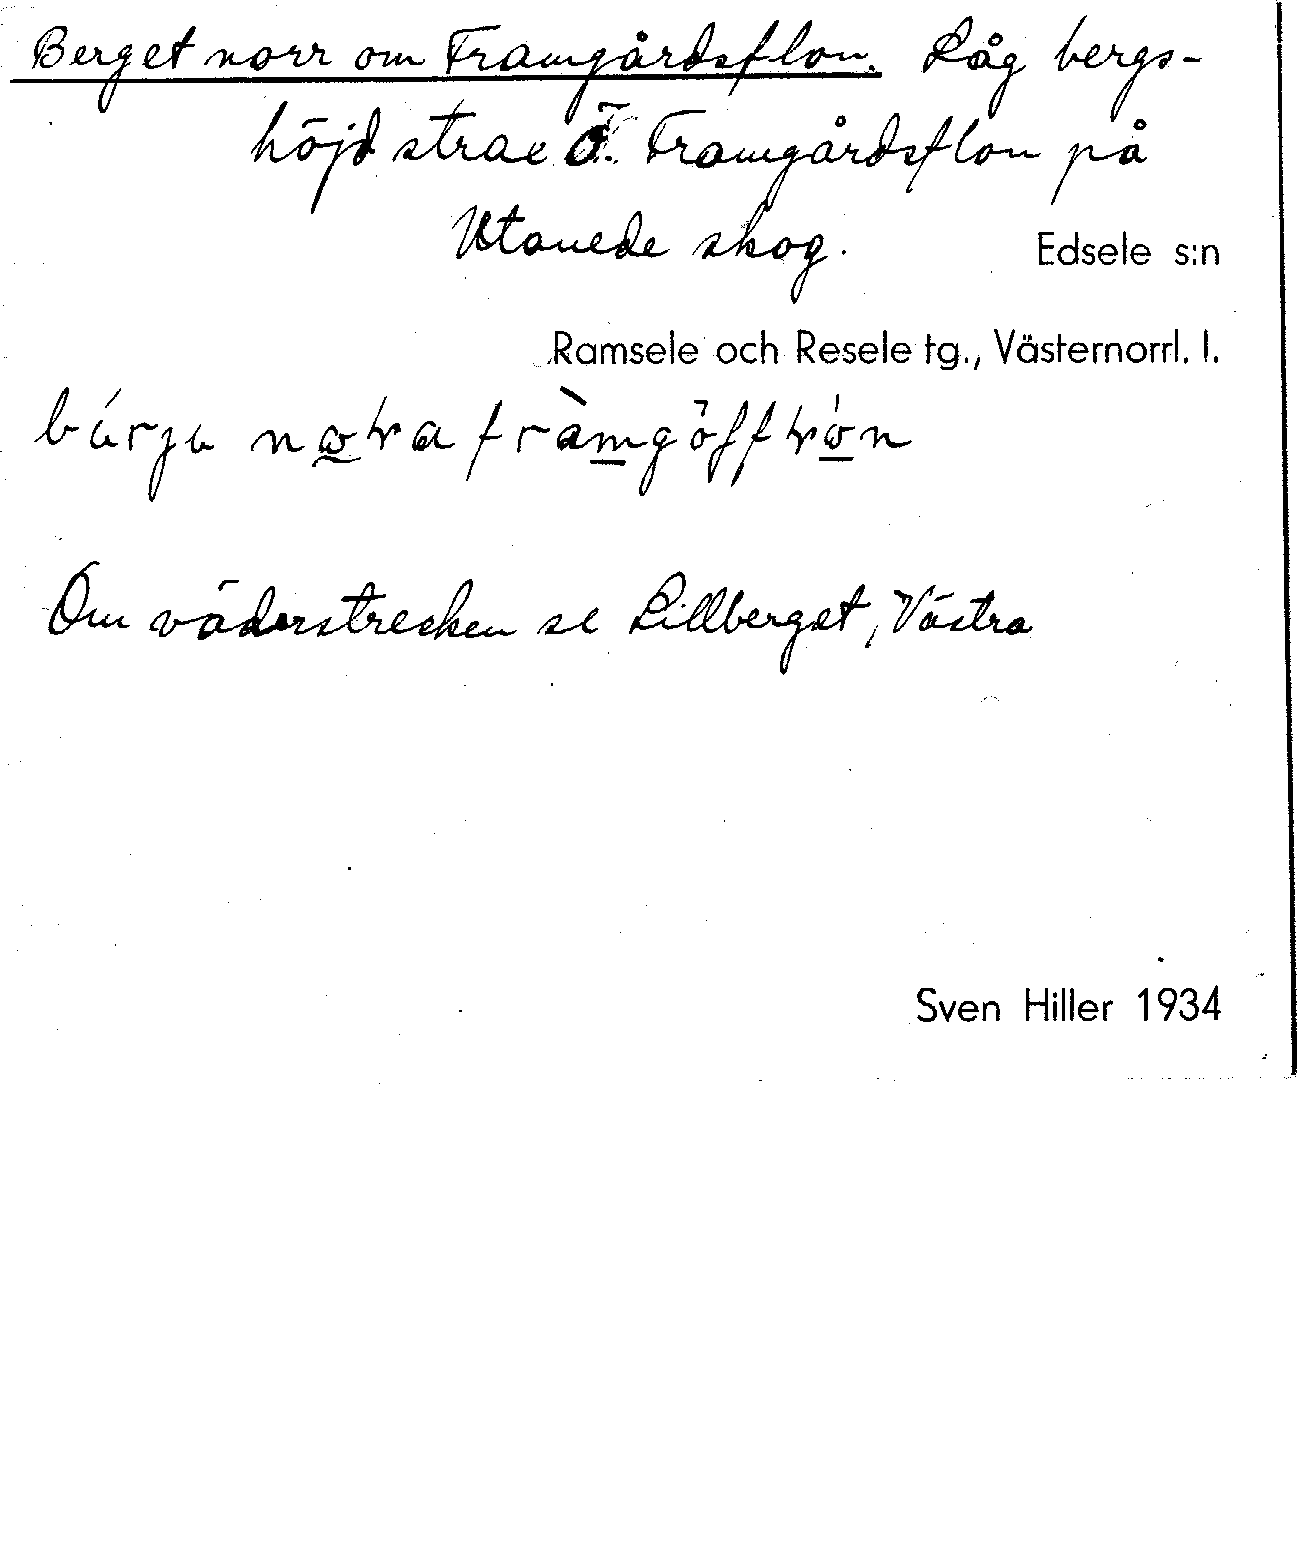 Berget norr om Framgårdsflon. Låg bergs-
höjd strax Ö. Framgårdsflon på
Utanede skog. Edsele s:n
Ramsele och Resele tg., Västernorrl. l.
Om väderstrecken se Lillberget, Västra
Sven Hiller 1934